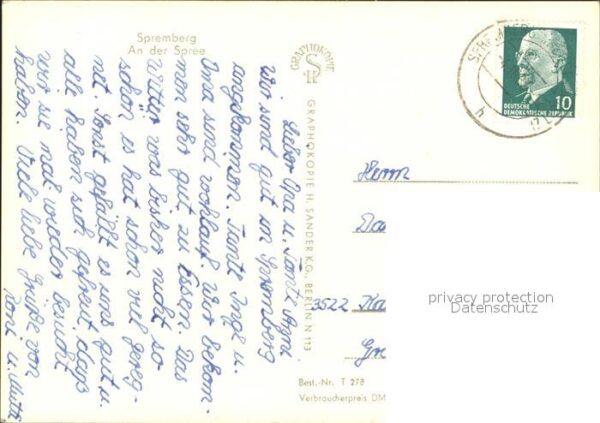 Spremberg
An der Spree
Lieber Opa u. Tante Anni
Wir sind gut in Spremberg
angekommen. Tante Inge u.
Oma sind wohlauf. Wir bekom-
men sehr gut zu Essen. Das
Wetter was bisher nicht so
schön es hat schon viel gereg-
net. Sonst gefällt es uns gut u.
alle haben sich gefreut, daß
wir sie mal wieder besucht
haben. Viele liebe Grüße von
Toni u. Mutti
GRAPHOKOPIE
GRAPHOKOPIE H. SANDER K.G., BERLIN N 113
DEUTSCHE
DEMOKRATISCHE REPUBLIK
10
Herrn
3522
privacy protection
Datenschutz
Best.-Nr. T 278
Verbraucherpreis DM